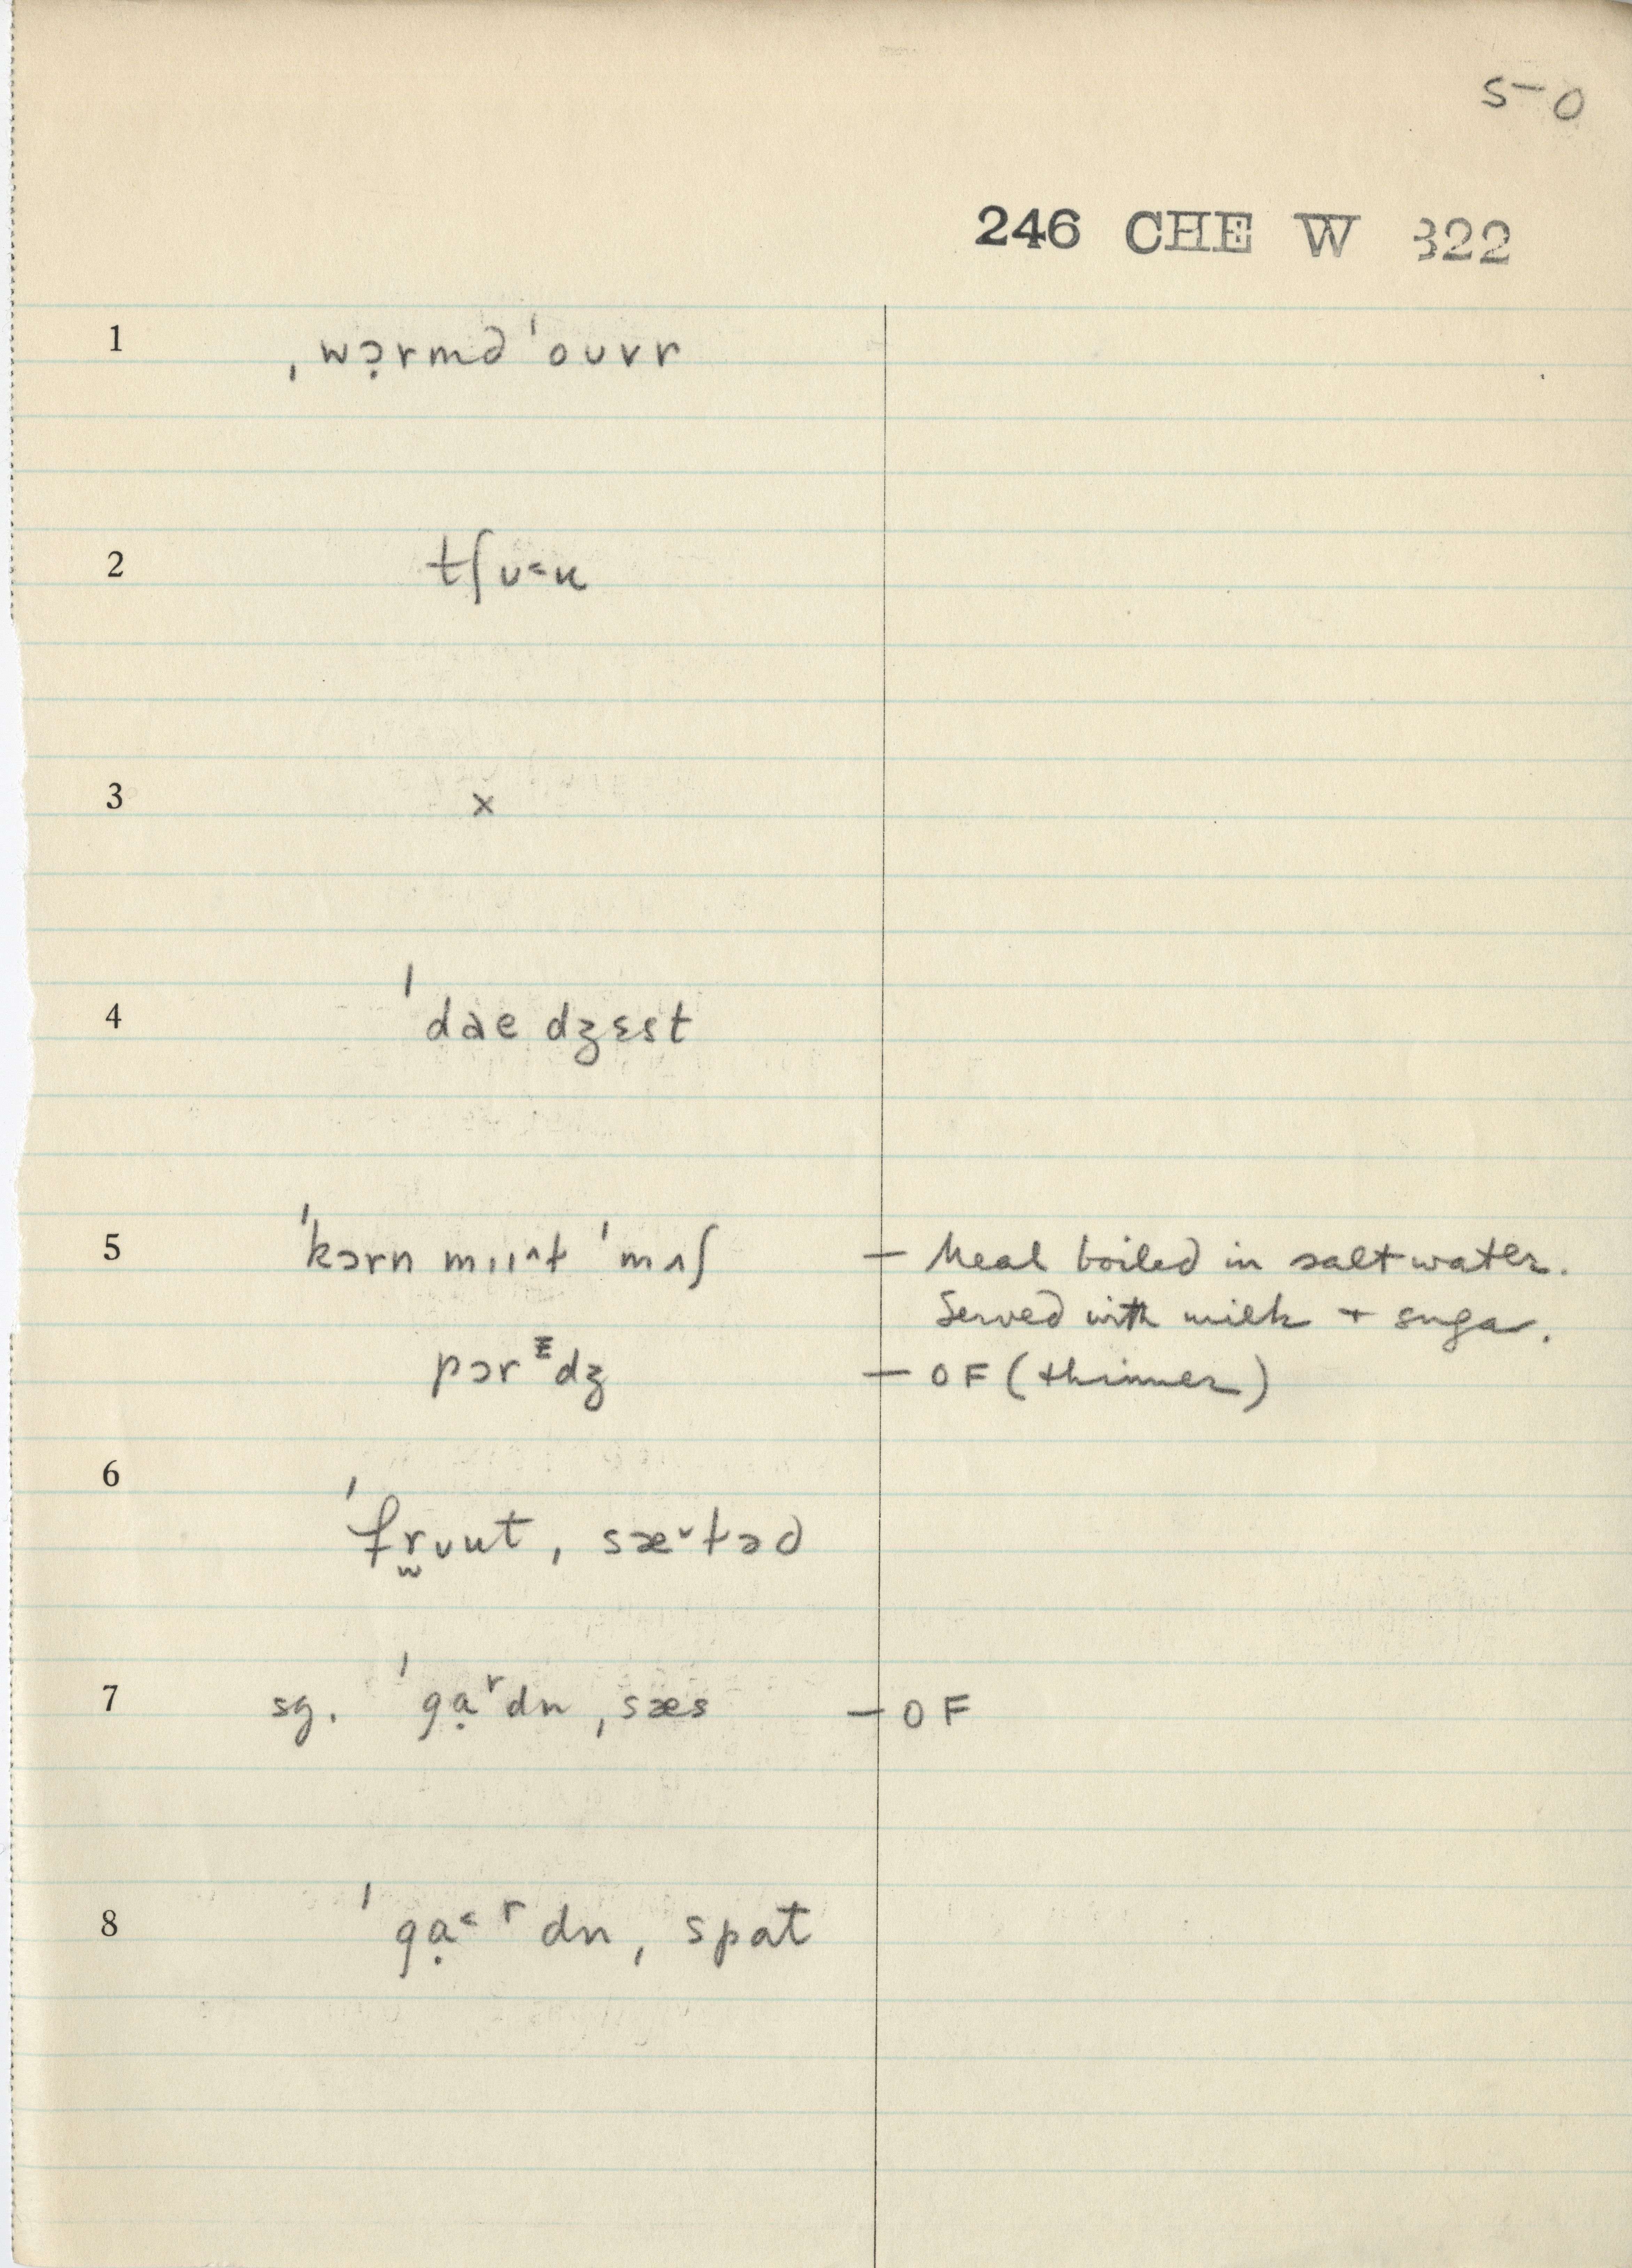 50
246 CHE W 322
1 ˌwɔ̣rmd ˈouvr
2 tʃʊ˂u
3 x
4 ˈdae dʒɛst
5 ˈkɔrn mɪi^ɫ ˈmʌʃ — Meal boiled in salt water.
Served with milk + sugar.
pɔrᵻdʒ — OF (thinner)
6 ˈfr̫ʊut, sæ˅ɫəd
7 sg. ˈgạʳdn, sæs — OF
8 ˈgạ˂ʳdn, spat